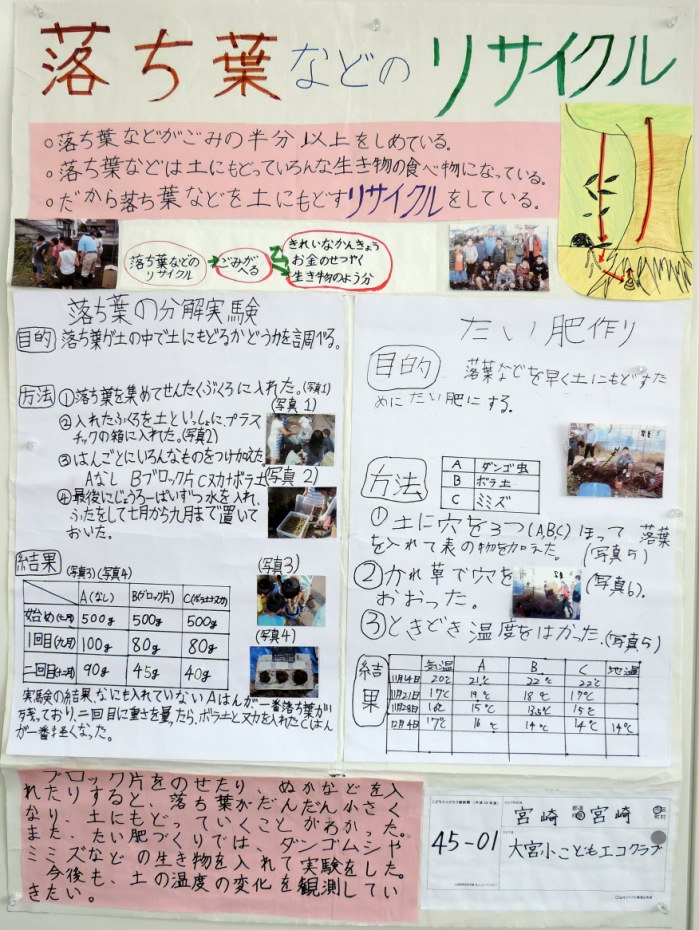 落ち葉などのリサイクル
○落ち葉などがごみの半分以上をしめている。
○落ち葉などは土にもどっていろんな生き物の食べ物になっている。
○だから落ち葉などを土にもどすリサイクルをしている。
落ち葉などの
リサイクル
ごみが
へる
きれいなかんきょう
お金のせつやく
生き物のよう分
落ち葉の分解実験
目的 落ち葉が土の中で土にもどるかどうかを調べる。
方法 ①落ち葉を集めてせんたくぶくろに入れた。(写真1)
(写真1)
②入れたふくろを土といっしょにプラス
チックの箱に入れた。(写真2)
③はんごとにいろんなものをつけ加えた。
Aなし Bブロック片 Cヌカ+ボラ土
(写真2)
④最後にじょうろ一ぱいずつ水を入れ、
ふたをして七月から九月まで置いて
おいた。
結果 (写真3)(写真4)
(写真3)
A(なし) B(ブロック片) C(ボラ土+ヌカ)
始め(七月) 500g 500g 500g
1回目(九月) 100g 80g 80g
二回目(十二月) 90g 45g 40g
(写真4)
実験の結果、なにも入れていないAはんが一番落ち葉が
残っており、二回目に重さを量ったら、ボラ土とヌカを入れたCはん
が一番軽くなった。
たい肥作り
目的 落葉などを早く土にもどすた
めにたい肥にする。
方法
A ダンゴ虫
B ボラ土
C ミミズ
①土に穴を3つ(A,B,C)ほって落葉
を入れて表の物を加えた。(写真5)
②かれ草で穴を
おおった。
(写真6).
③ときどき温度をはかった.(写真5)
結果
気温 A B C 地温
11月14日 20℃ 21℃ 22℃ 22℃
11月21日 17℃ 19℃ 18℃ 17℃
11月28日 16℃ 15℃ 13.5℃ 15℃
12月4日 17℃ 16℃ 14℃ 14℃ 14℃
ブロック片をのせたり、ぬかなどを入
れたりすると、落ち葉がだんだん小さく
なり、土にもどっていくことがわかった。
また、たい肥づくりでは、ダンゴムシや
ミミズなどの生き物を入れて実験をした。
今後も、土の温度の変化を観測してい
きたい。
45-01
宮崎 宮崎
大宮小こどもエコクラブ